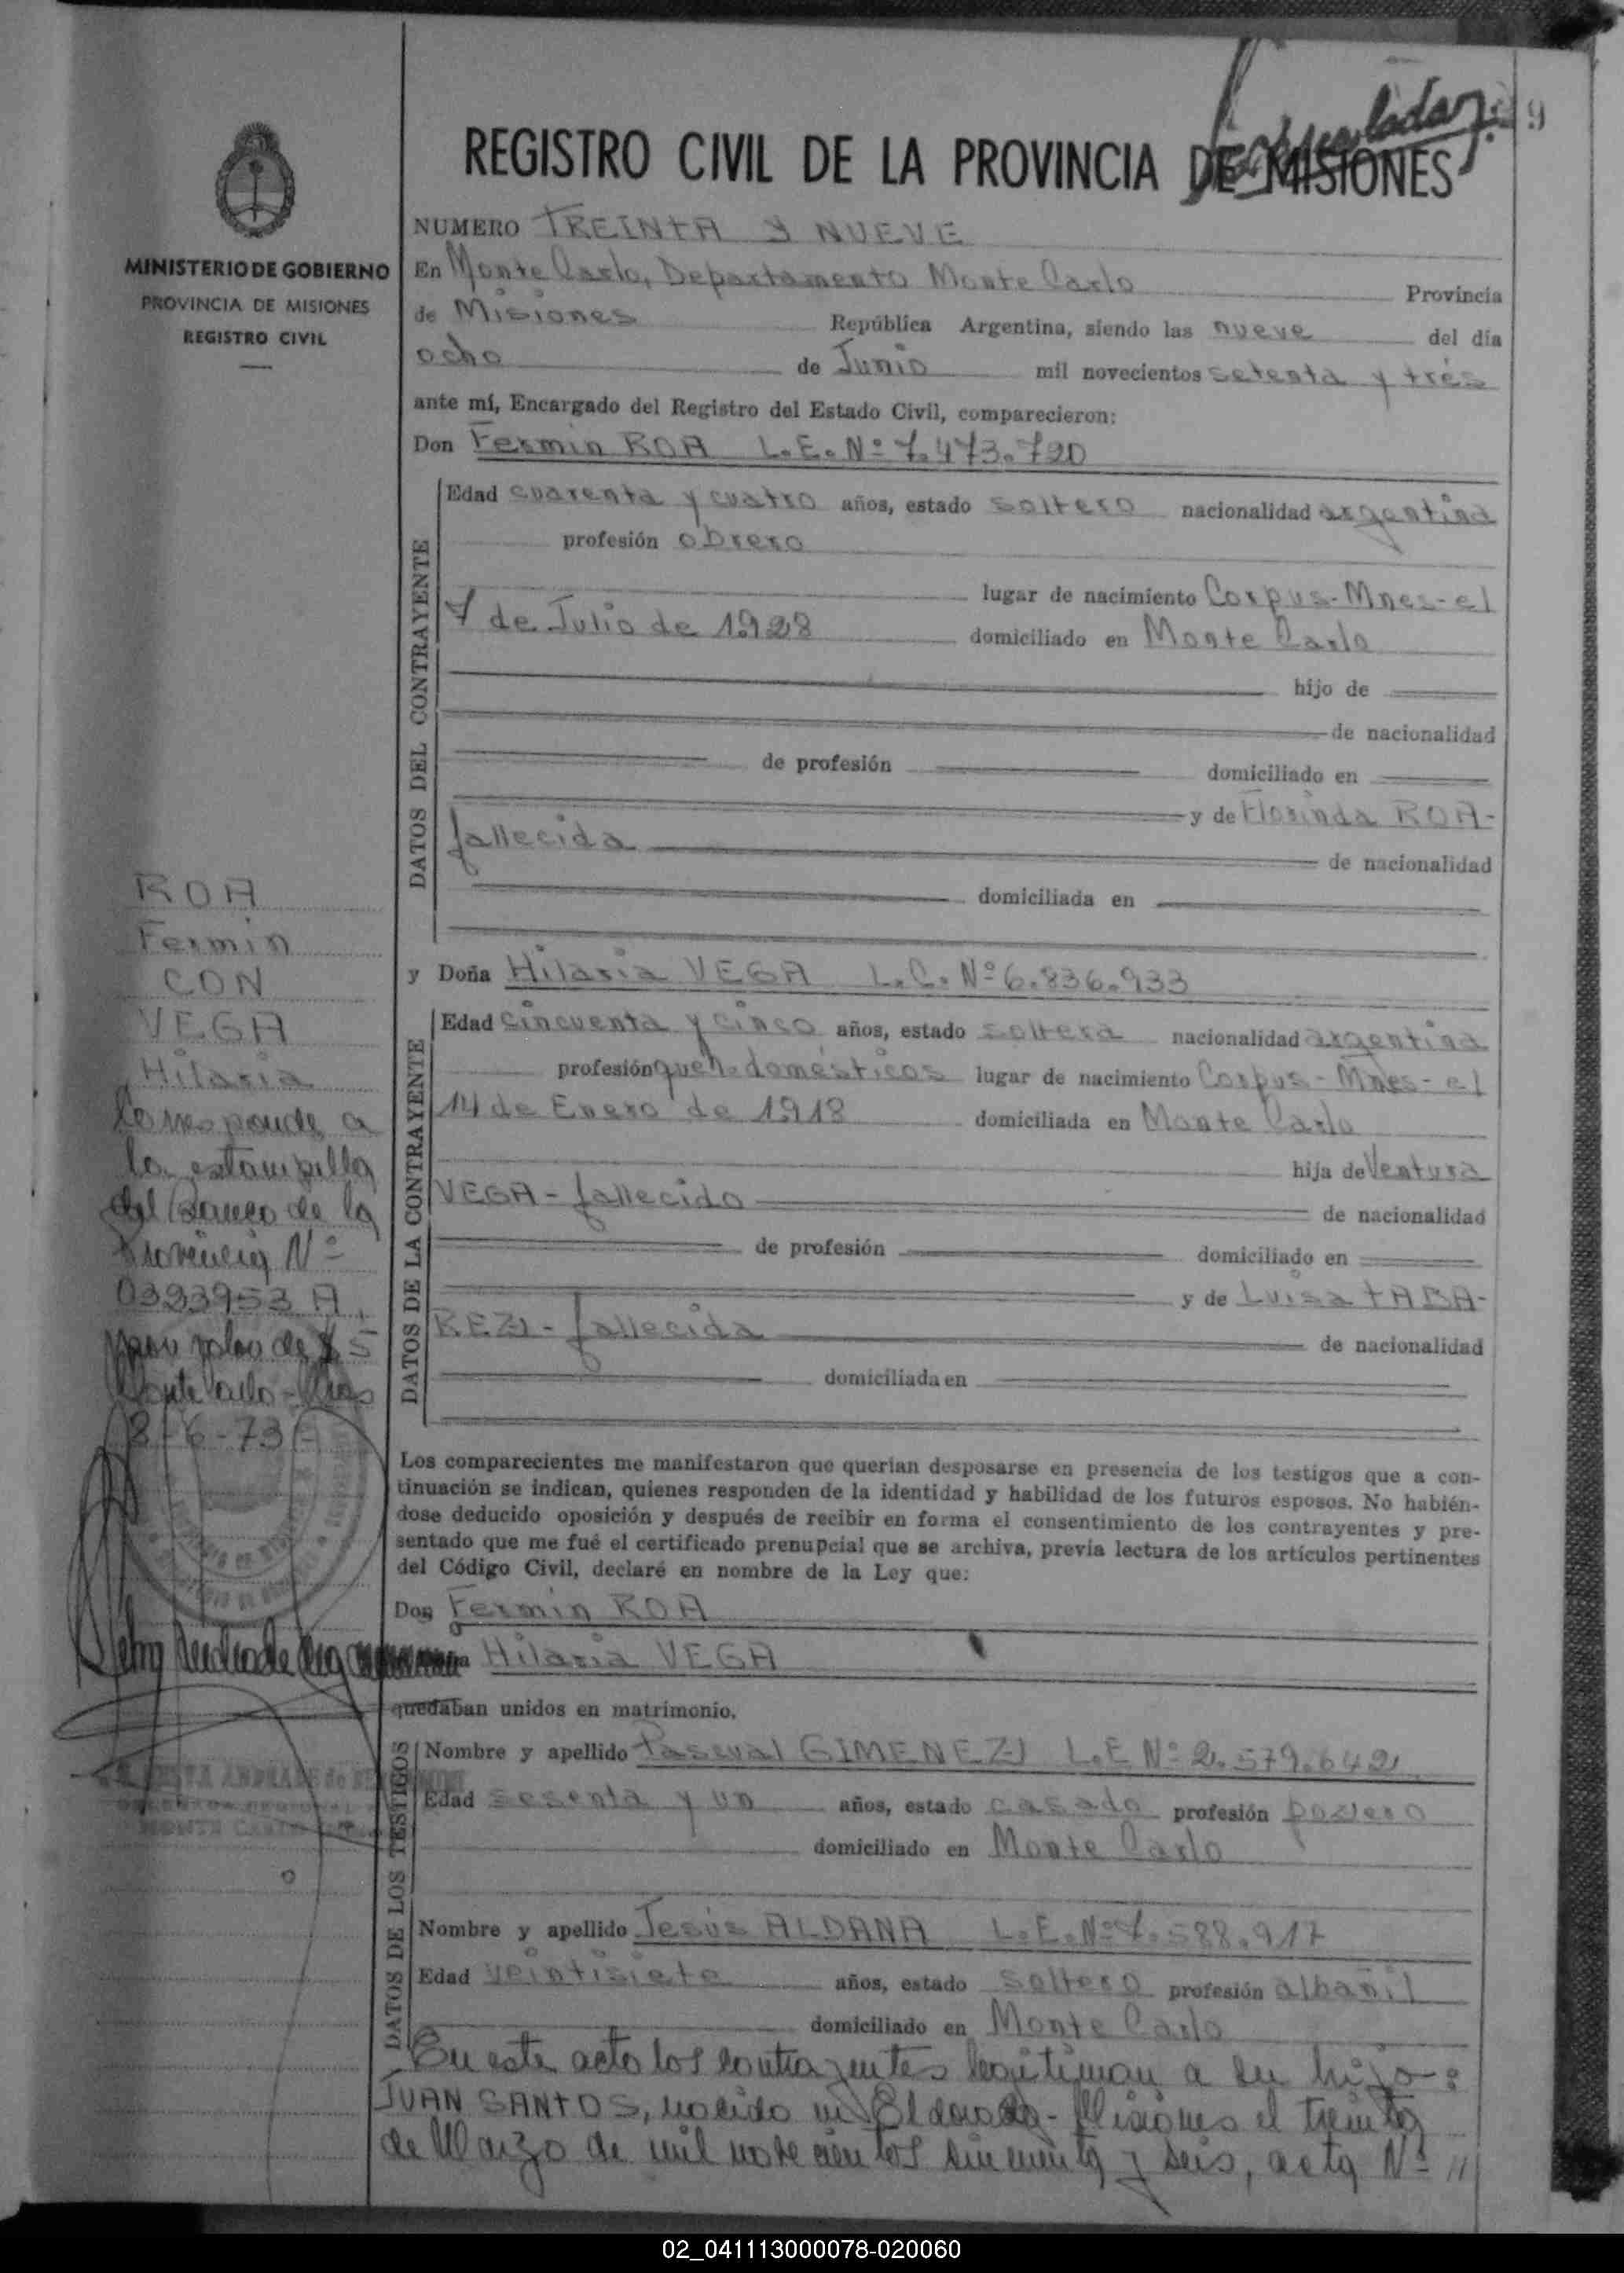 9
REGISTRO CIVIL DE LA PROVINCIA DE MISIONES
MINISTERIO DE GOBIERNO
PROVINCIA DE MISIONES
REGISTRO CIVIL
NUMERO TREINTA Y NUEVE
En Monte Carlo, Departamento Monte Carlo Provincia
de Misiones República Argentina, siendo las nueve del día
ocho de Junio mil novecientos setenta y tres
ante mí, Encargado del Registro del Estado Civil, comparecieron:
Don Fermin ROA L.E. Nº 7.473.720
DATOS DEL CONTRAYENTE
Edad cuarenta y cuatro años, estado soltero nacionalidad argentina
profesión obrero
lugar de nacimiento Corpus-Mnes-el
7 de Julio de 1928 domiciliado en Monte Carlo
hijo de
de nacionalidad
de profesión domiciliado en
y de Florinda ROA-
fallecida de nacionalidad
domiciliada en
ROA
Fermin
CON
VEGA
Hilaria
Corresponde a
la estampilla
del Banco de la
Provincia Nº
0393953 A
por valor de $ 5
Monte Carlo-Mnes
8-6-73
y Doña Hilaria VEGA L.C. Nº 6.836.933
DATOS DE LA CONTRAYENTE
Edad cincuenta y cinco años, estado soltera nacionalidad argentina
profesión queh. domésticos lugar de nacimiento Corpus-Mnes-el
14 de Enero de 1918 domiciliada en Monte Carlo
hija de Ventura
VEGA-fallecido de nacionalidad
de profesión domiciliado en
y de Luisa TABA-
REZ-fallecida de nacionalidad
domiciliada en
Los comparecientes me manifestaron que querían desposarse en presencia de los testigos que a con-
tinuación se indican, quienes responden de la identidad y habilidad de los futuros esposos. No habién-
dose deducido oposición y después de recibir en forma el consentimiento de los contrayentes y pre-
sentado que me fué el certificado prenupcial que se archiva, previa lectura de los artículos pertinentes
del Código Civil, declaré en nombre de la Ley que:
Don Fermin ROA
Hilaria VEGA
quedaban unidos en matrimonio.
DATOS DE LOS TESTIGOS
Nombre y apellido Pascual GIMENEZ L.E Nº 2.579.642
Edad sesenta y un años, estado casado profesión pozero
domiciliado en Monte Carlo
Nombre y apellido Jesús ALDANA L.E. Nº 7.588.917
Edad veintisiete años, estado soltero profesión albañil
domiciliado en Monte Carlo
En este acto los contrayentes legitiman a su hijo:
JUAN SANTOS, nacido en Eldorado-Misiones el treinta
de Marzo de mil novecientos cincuenta y seis, acta Nº 11
02_041113000078-020060